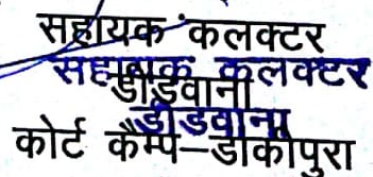 सहायक कलक्टर
सहायक कलक्टर
डीडवाना
डीडवाना
कोर्ट कैम्प–डाकीपुरा